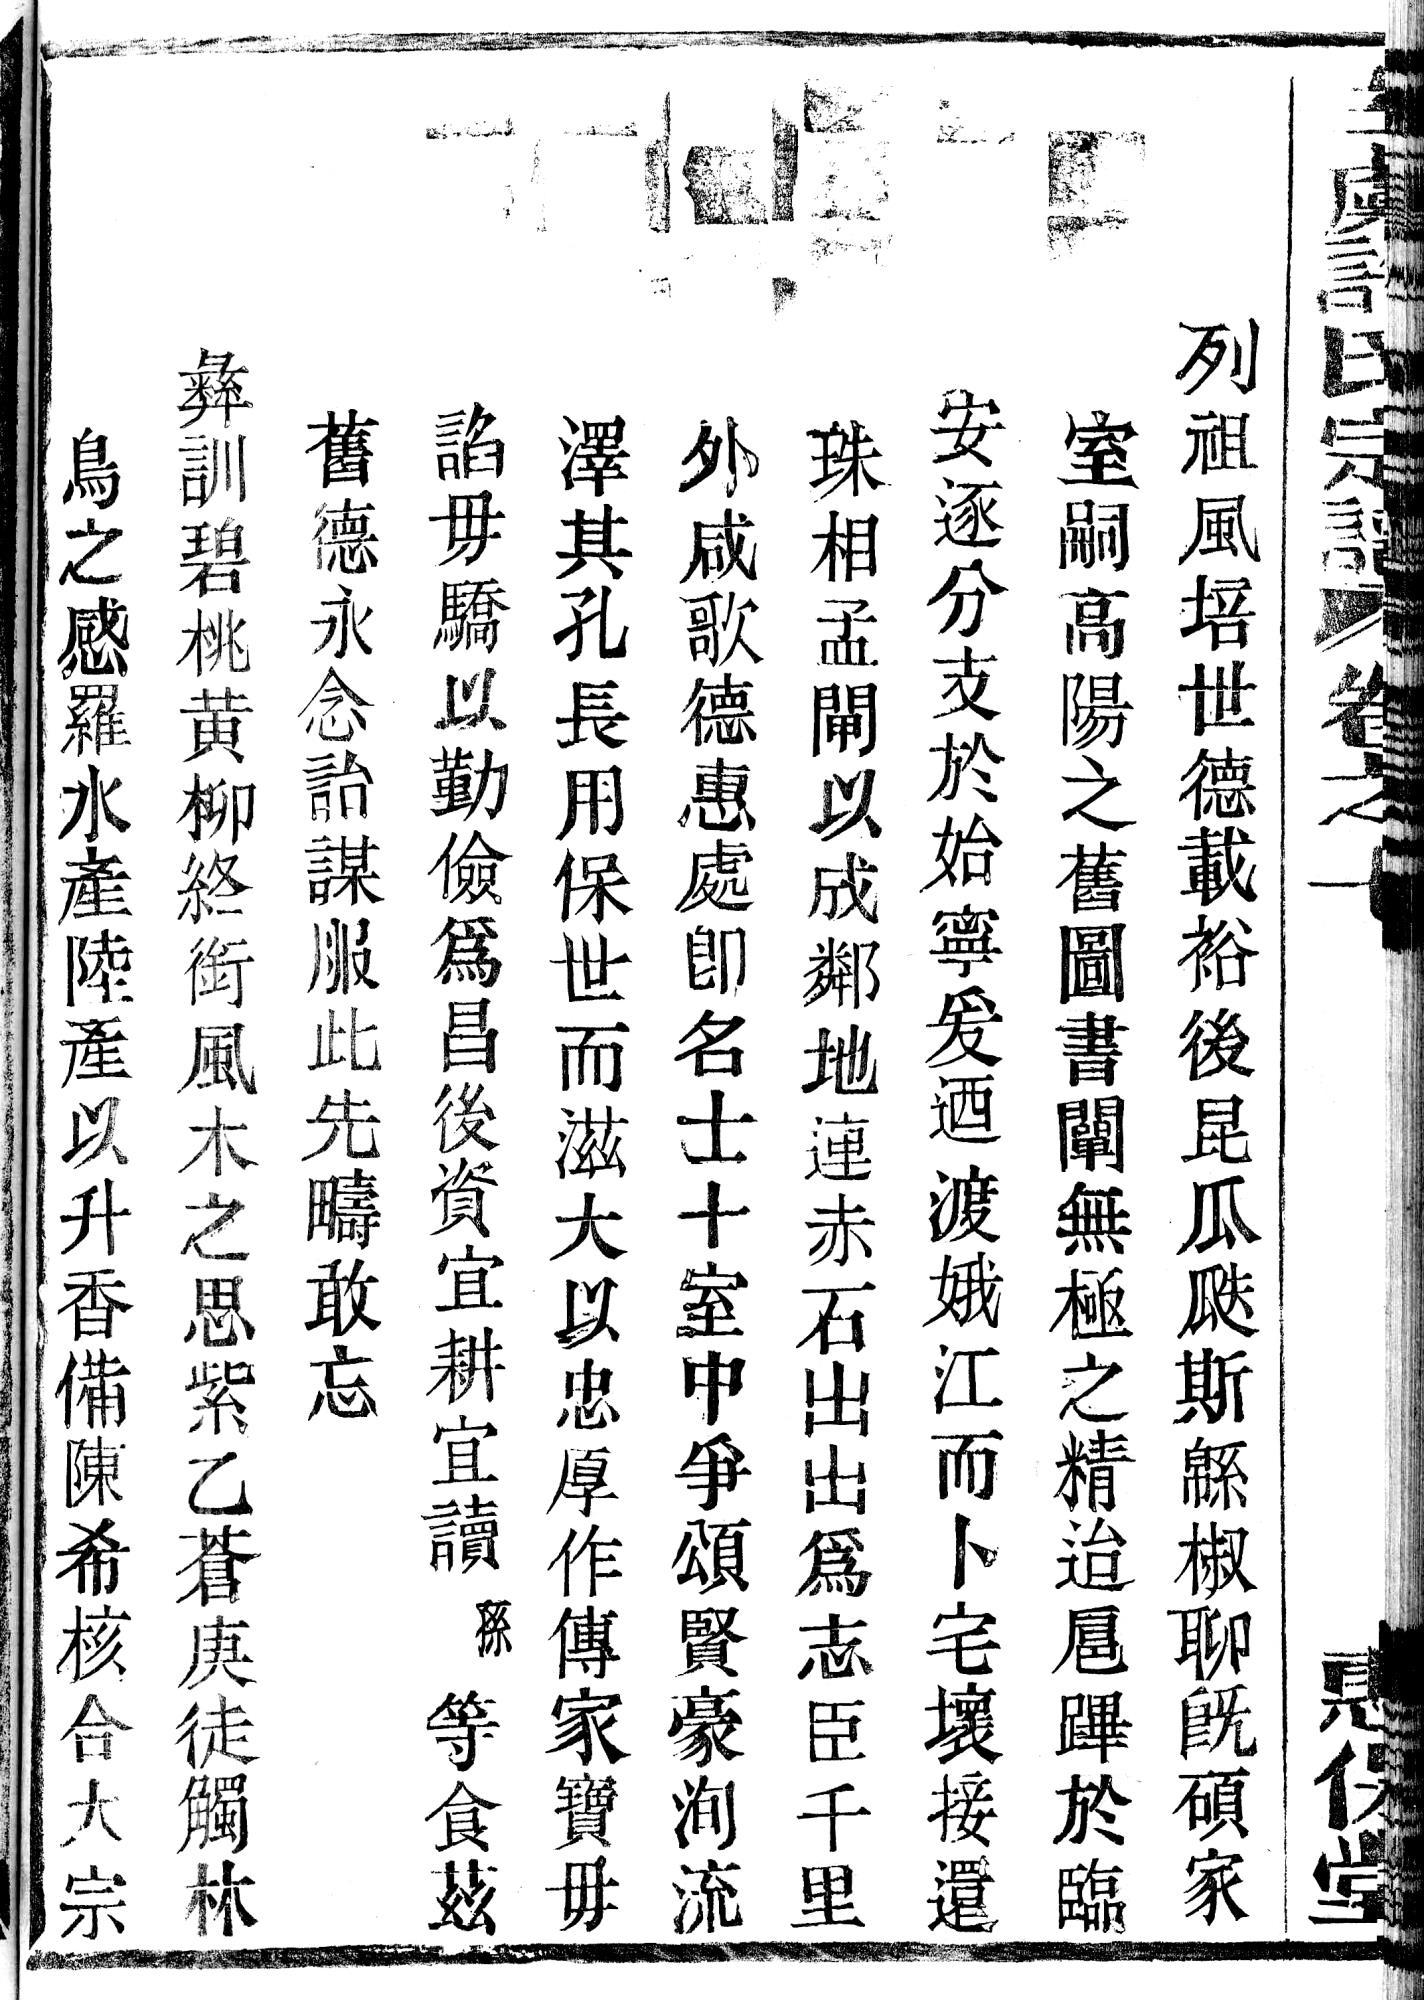 虞許氏宗譜 卷之一
恩保堂
列祖風培世德載裕後昆瓜瓞斯緜椒聊旣碩家
室嗣高陽之舊圖書闡無極之精迨扈蹕於臨
安逐分支於始寧爰迺渡娥江而卜宅壞接還
珠相孟閘以成鄰地連赤石出出爲志臣千里
外咸歌德惠處卽名士十室中爭頌賢豪洵流
澤其孔長用保世而滋大以忠厚作傳家寶毋
諂毋驕以勤儉爲昌後資宜耕宜讀孫等食茲
舊德永念詒謀服此先疇敢忘
彝訓碧桃黃柳終銜風木之思紫乙蒼庚徒觸林
鳥之感羅水產陸產以升香備陳希核合大宗